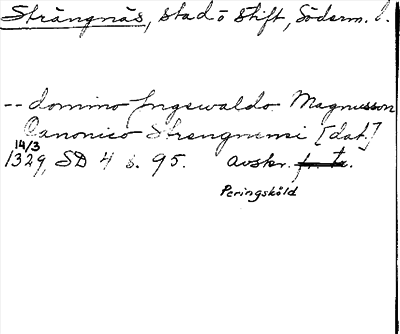 Strängnäs, stad o stift, Söderm. l.
-- domino Ingewaldo Magnusson
Canonico Strengnensi [dat.]
14/3
1329, SD 4 s. 95. avskr. fr. tr.
Peringsköld